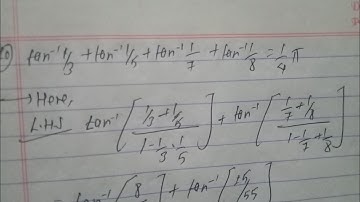 tan⁻¹ 1/3 + tan⁻¹ 1/5 + tan⁻¹ 1/7 + tan⁻¹ 1/8 = 1/4 π
→ Here,
LHS tan⁻¹ [ (1/3 + 1/5) / (1 - 1/3 · 1/5) ] + tan⁻¹ [ (1/7 + 1/8) / (1 - 1/7 + 1/8) ]
= tan⁻¹ [ 8/ ] + tan⁻¹ [ 15/55 ]